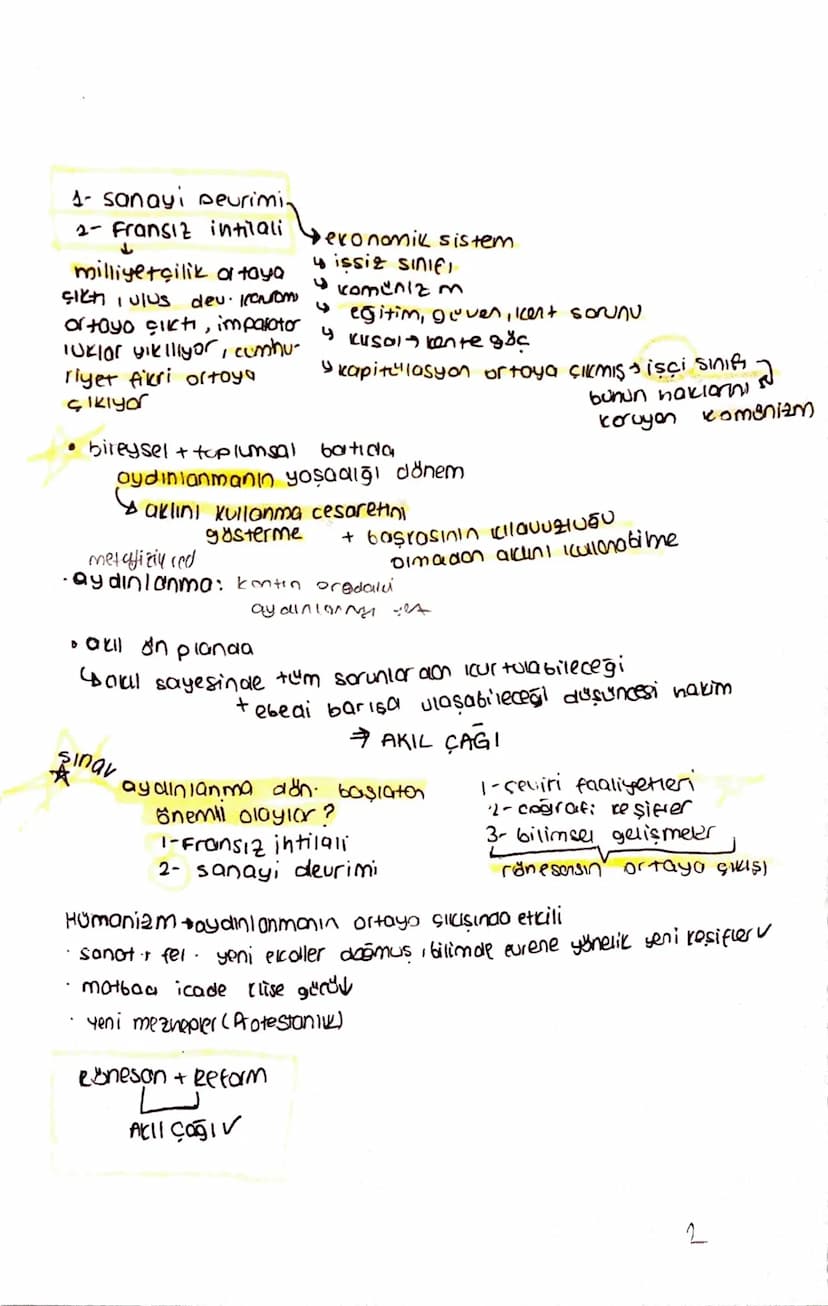 1- sanayi Devrimi
2- Fransız intilali
↓
milliyetçilik ortaya
çıktı, ulus dev. kavram
ortaya çıktı, imparator
luklar yıkılıyor, cumhu-
riyet fikri ortaya
çıkıyor
↳ ekonomik sistem
↳ işsiz sınıfı
↳ komünizm
↳ eğitim, güven, kent sorunu
↳ kırsal → kente göç
↳ kapitülasyon ortaya çıkmış → işçi sınıfı
bunun haklarını
koruyan komünizm
• bireysel + toplumsal batıda
aydınlanmanın yaşadığı dönem
↳ aklını kullanma cesaretini
gösterme + başkasının kılavuzluğu
olmadan aklını kullanabilme
metafizik red
· aydınlanma: kantın oradaki
aydınlanma
• akıl ön planda
↳ akıl sayesinde tüm sorunlardan kurtulabileceği
+ ebedi barışa ulaşabileceği düşüncesi hakim
⇒ AKIL ÇAĞI
sınav
☆ aydınlanma dön. başlatan
önemli olaylar?
1- Fransız ihtilali
2- sanayi devrimi
1- çeviri faaliyetleri
2- coğrafi keşifler
3- bilimsel gelişmeler
rönesansın ortaya çıkışı
Hümanizm → aydınlanmanın ortaya çıkışında etkili
· sanat + fel. yeni ekoller doğmuş, bilimde evrene yönelik yeni keşifler ✓
· matbaa icadı kilise gücü ↓
· yeni mezhepler (Protestanlık)
Rönesan + Reform
Akıl Çağı ✓
2